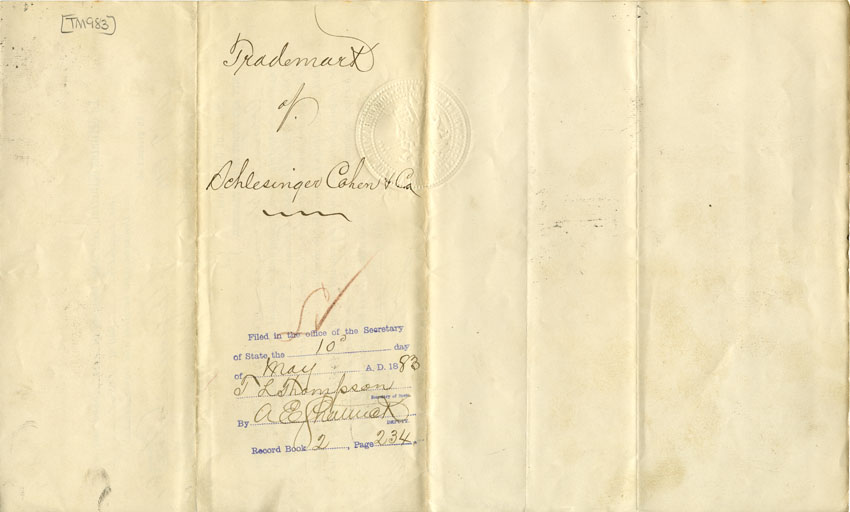 [TM983]
Trademark
of
Schlesinger Cohen & Co
Filed in the office of the Secretary
of State, the 10th day
of May A. D. 1883
T L Thompson
Secretary of State.
By A E Shattuck
DEPUTY.
Record Book 2, Page 234.